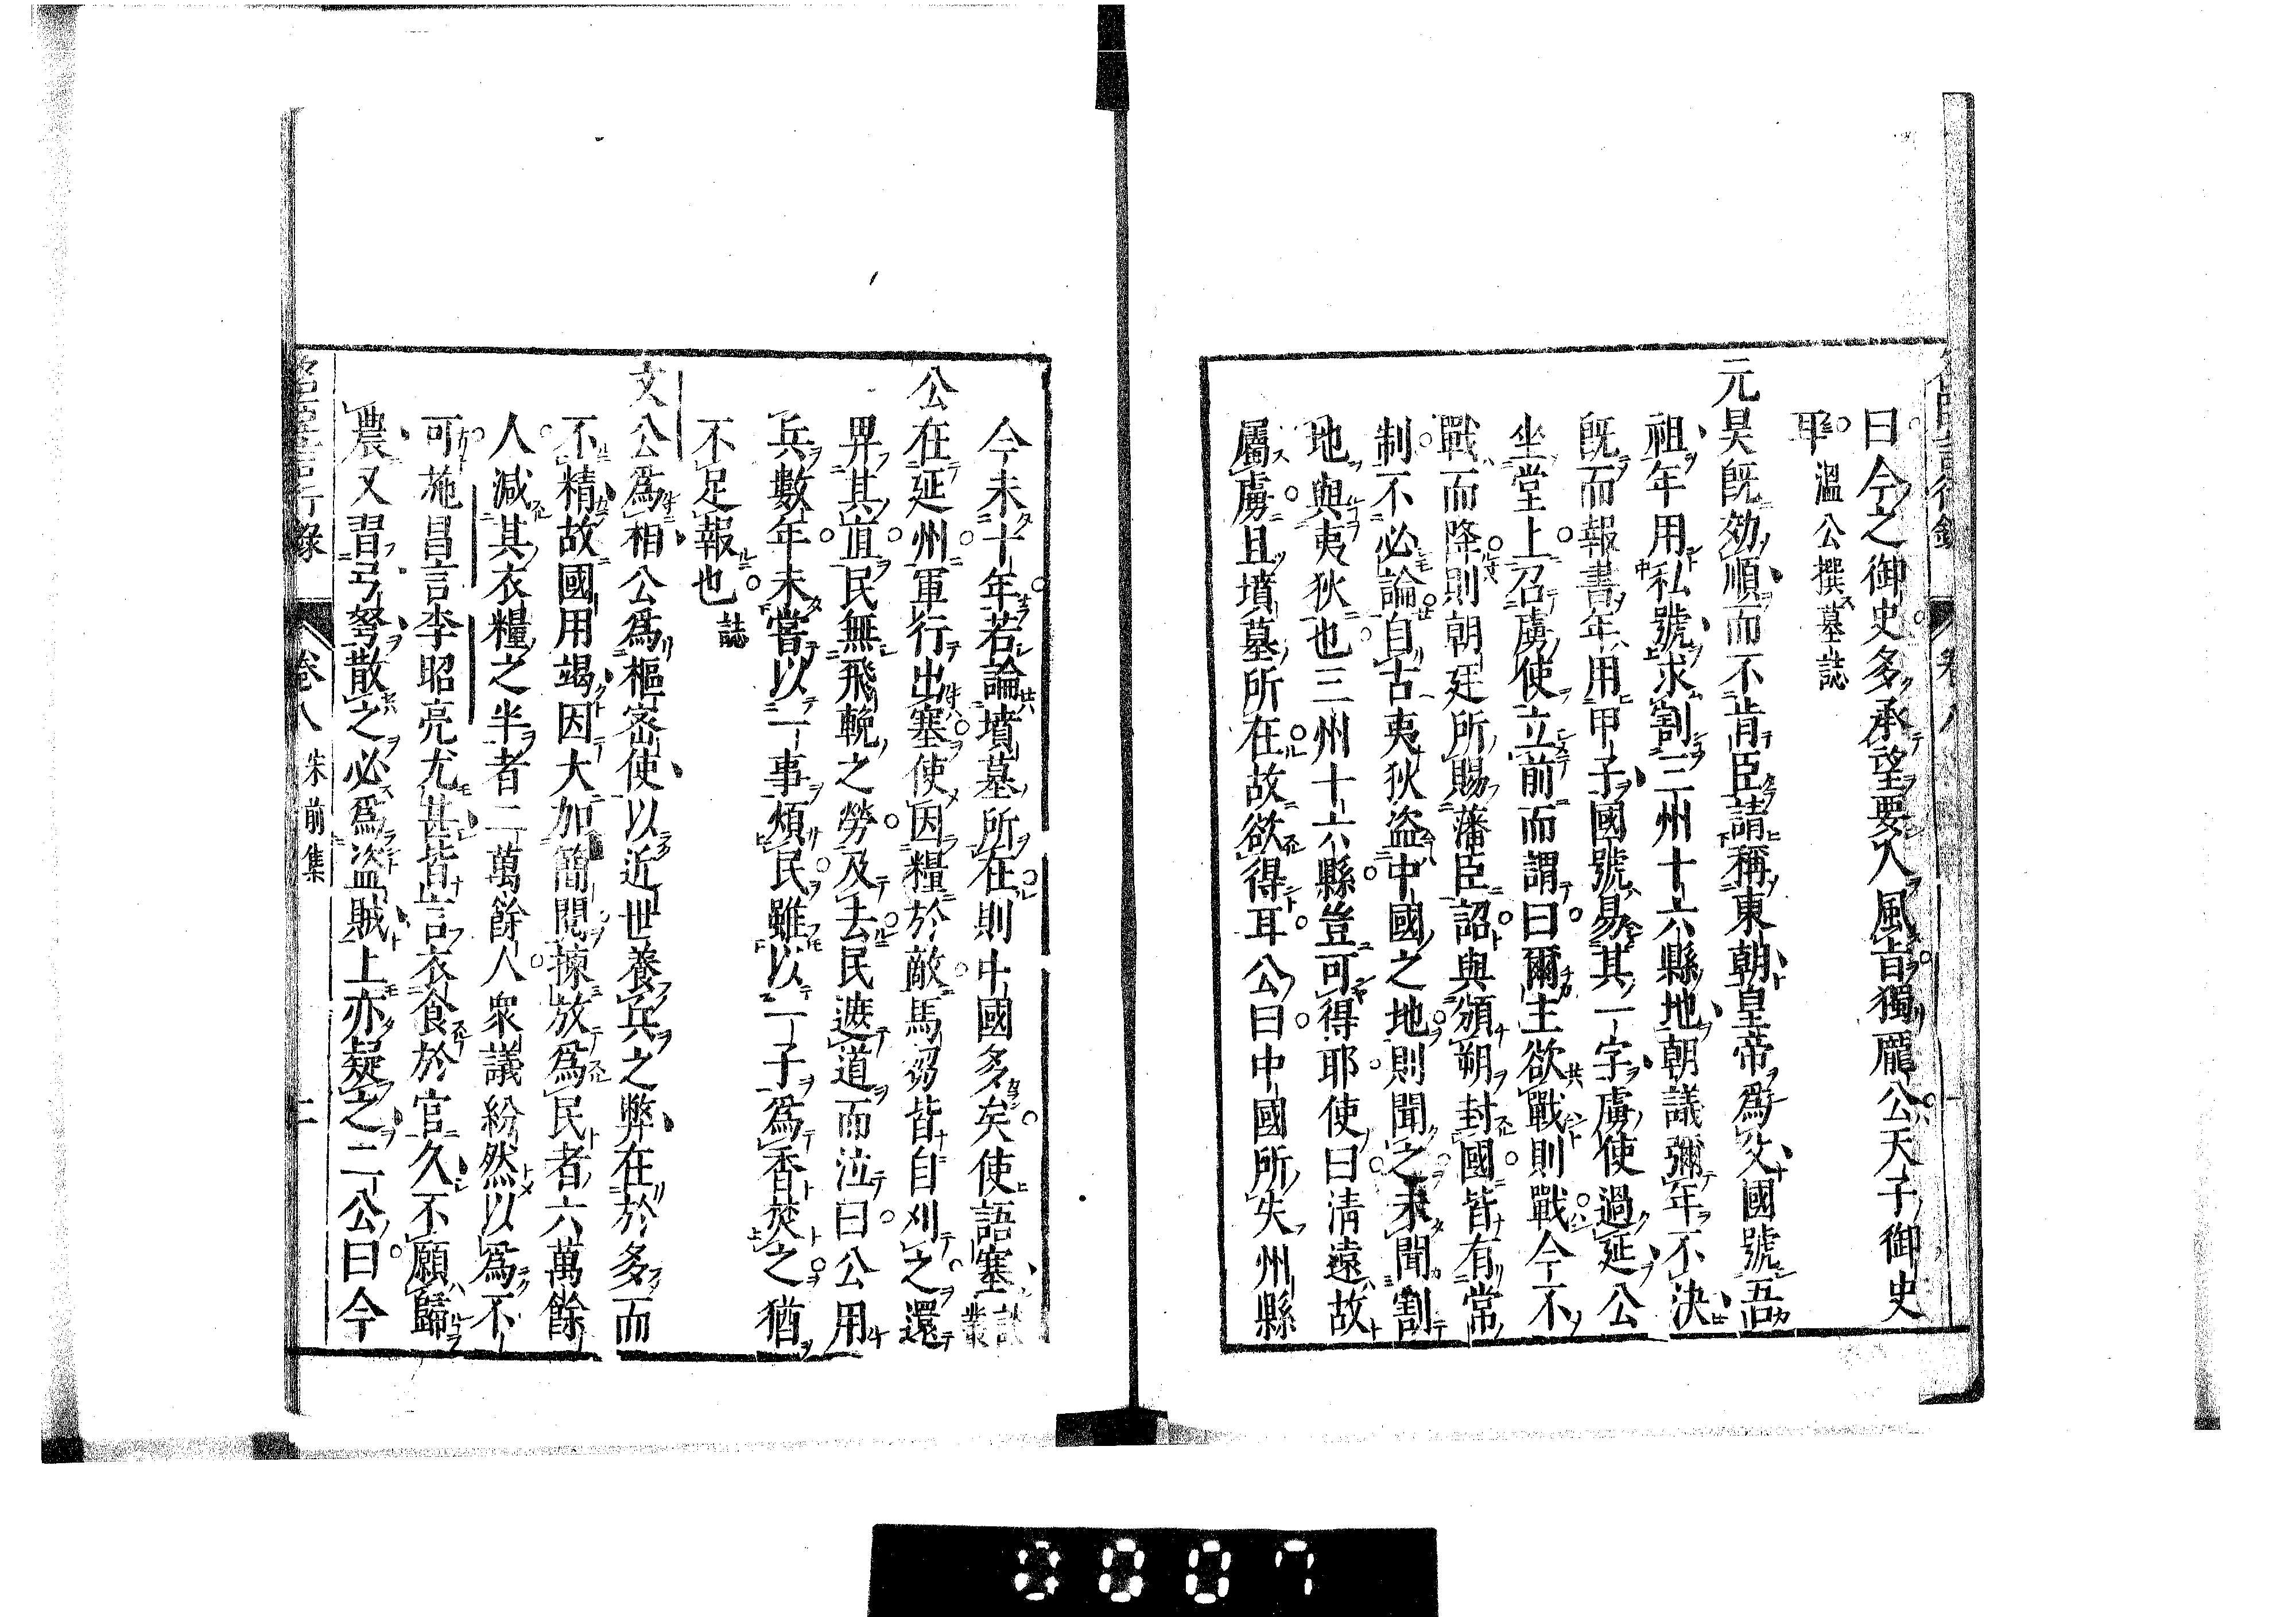 曰今之御史多承望要人風旨獨龐公天子御史
耳 溫公撰墓誌
元昊既効順而不肯臣請稱東朝皇帝爲父國號吾
祖年用私號求割三州十六縣地朝議彌年不決
既而報書年用甲子國號易其一字虜使過延公
坐堂上召虜使立前而謂曰爾主欲戰則戰今不
戰而降則朝廷所賜藩臣詔與頒朔封國皆有常
制不必論自古夷狄盜中國之地則聞之未聞割
地與夷狄也三州十六縣豈可得耶使曰清遠故
屬虜且墳墓所在故欲得耳公曰中國所失州縣
今未十年若論墳墓所在則中國多矣使語塞 談叢
公在延州軍行出塞使因糧於敵馬芻皆自刈之還
畀其直民無飛輓之勞及去民遮道而泣曰公用
兵數年未嘗以一事煩民雖以一子爲香焚之猶
不足報也 誌
文公爲相公爲樞密使以近世養兵之弊在於多而
不精故國用竭因大加簡閱揀放爲民者六萬餘
人減其衣糧之半者二萬餘人衆議紛然以爲不
可施昌言李昭亮尤甚皆言衣食於官久不願歸
農又習弓弩散之必爲盜賊上亦疑之二公曰今
名臣言行錄 卷八 宋前集 二